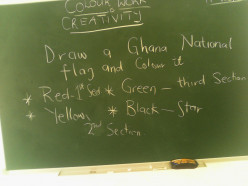 COLOUR WORK
CREATIVITY
Draw a Ghana National
flag and Colour it
* Red - 1st Sect * Green - third Section
* Yellow * Black - Star
2nd Section